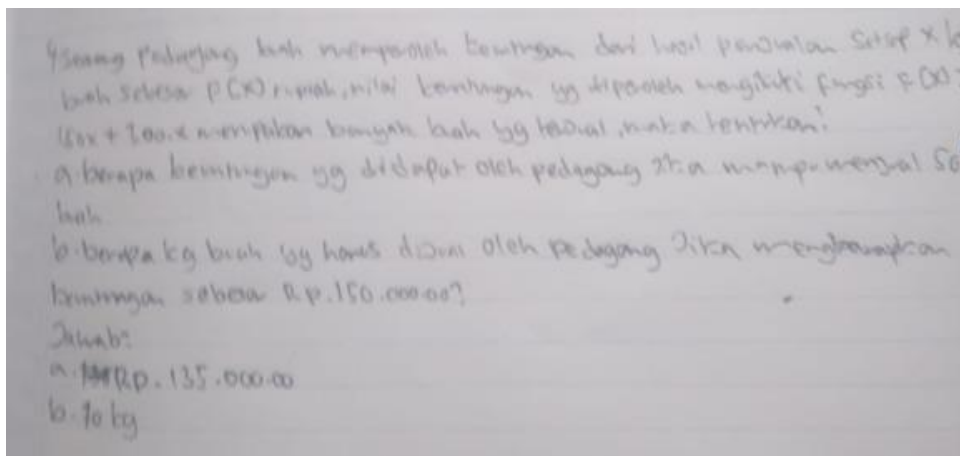 Seorang Pedagang buah memperoleh keuntungan dari hasil penjualan Setiap x
buah sebesar P(x) rupiah, nilai keuntungan yg diperoleh mengikuti fungsi F(x)
merupakan banyak buah yg terjual, maka tentukan!
a. berapa keuntungan yg didapat oleh pedagang Jika mampu menjual
buah.
b. berapa kg buah yg harus dijual oleh pedagang Jika mengharapkan
keuntungan sebesar Rp.150.000.00?
Jawab:
a. Rp.135.000.00
b. 90 kg